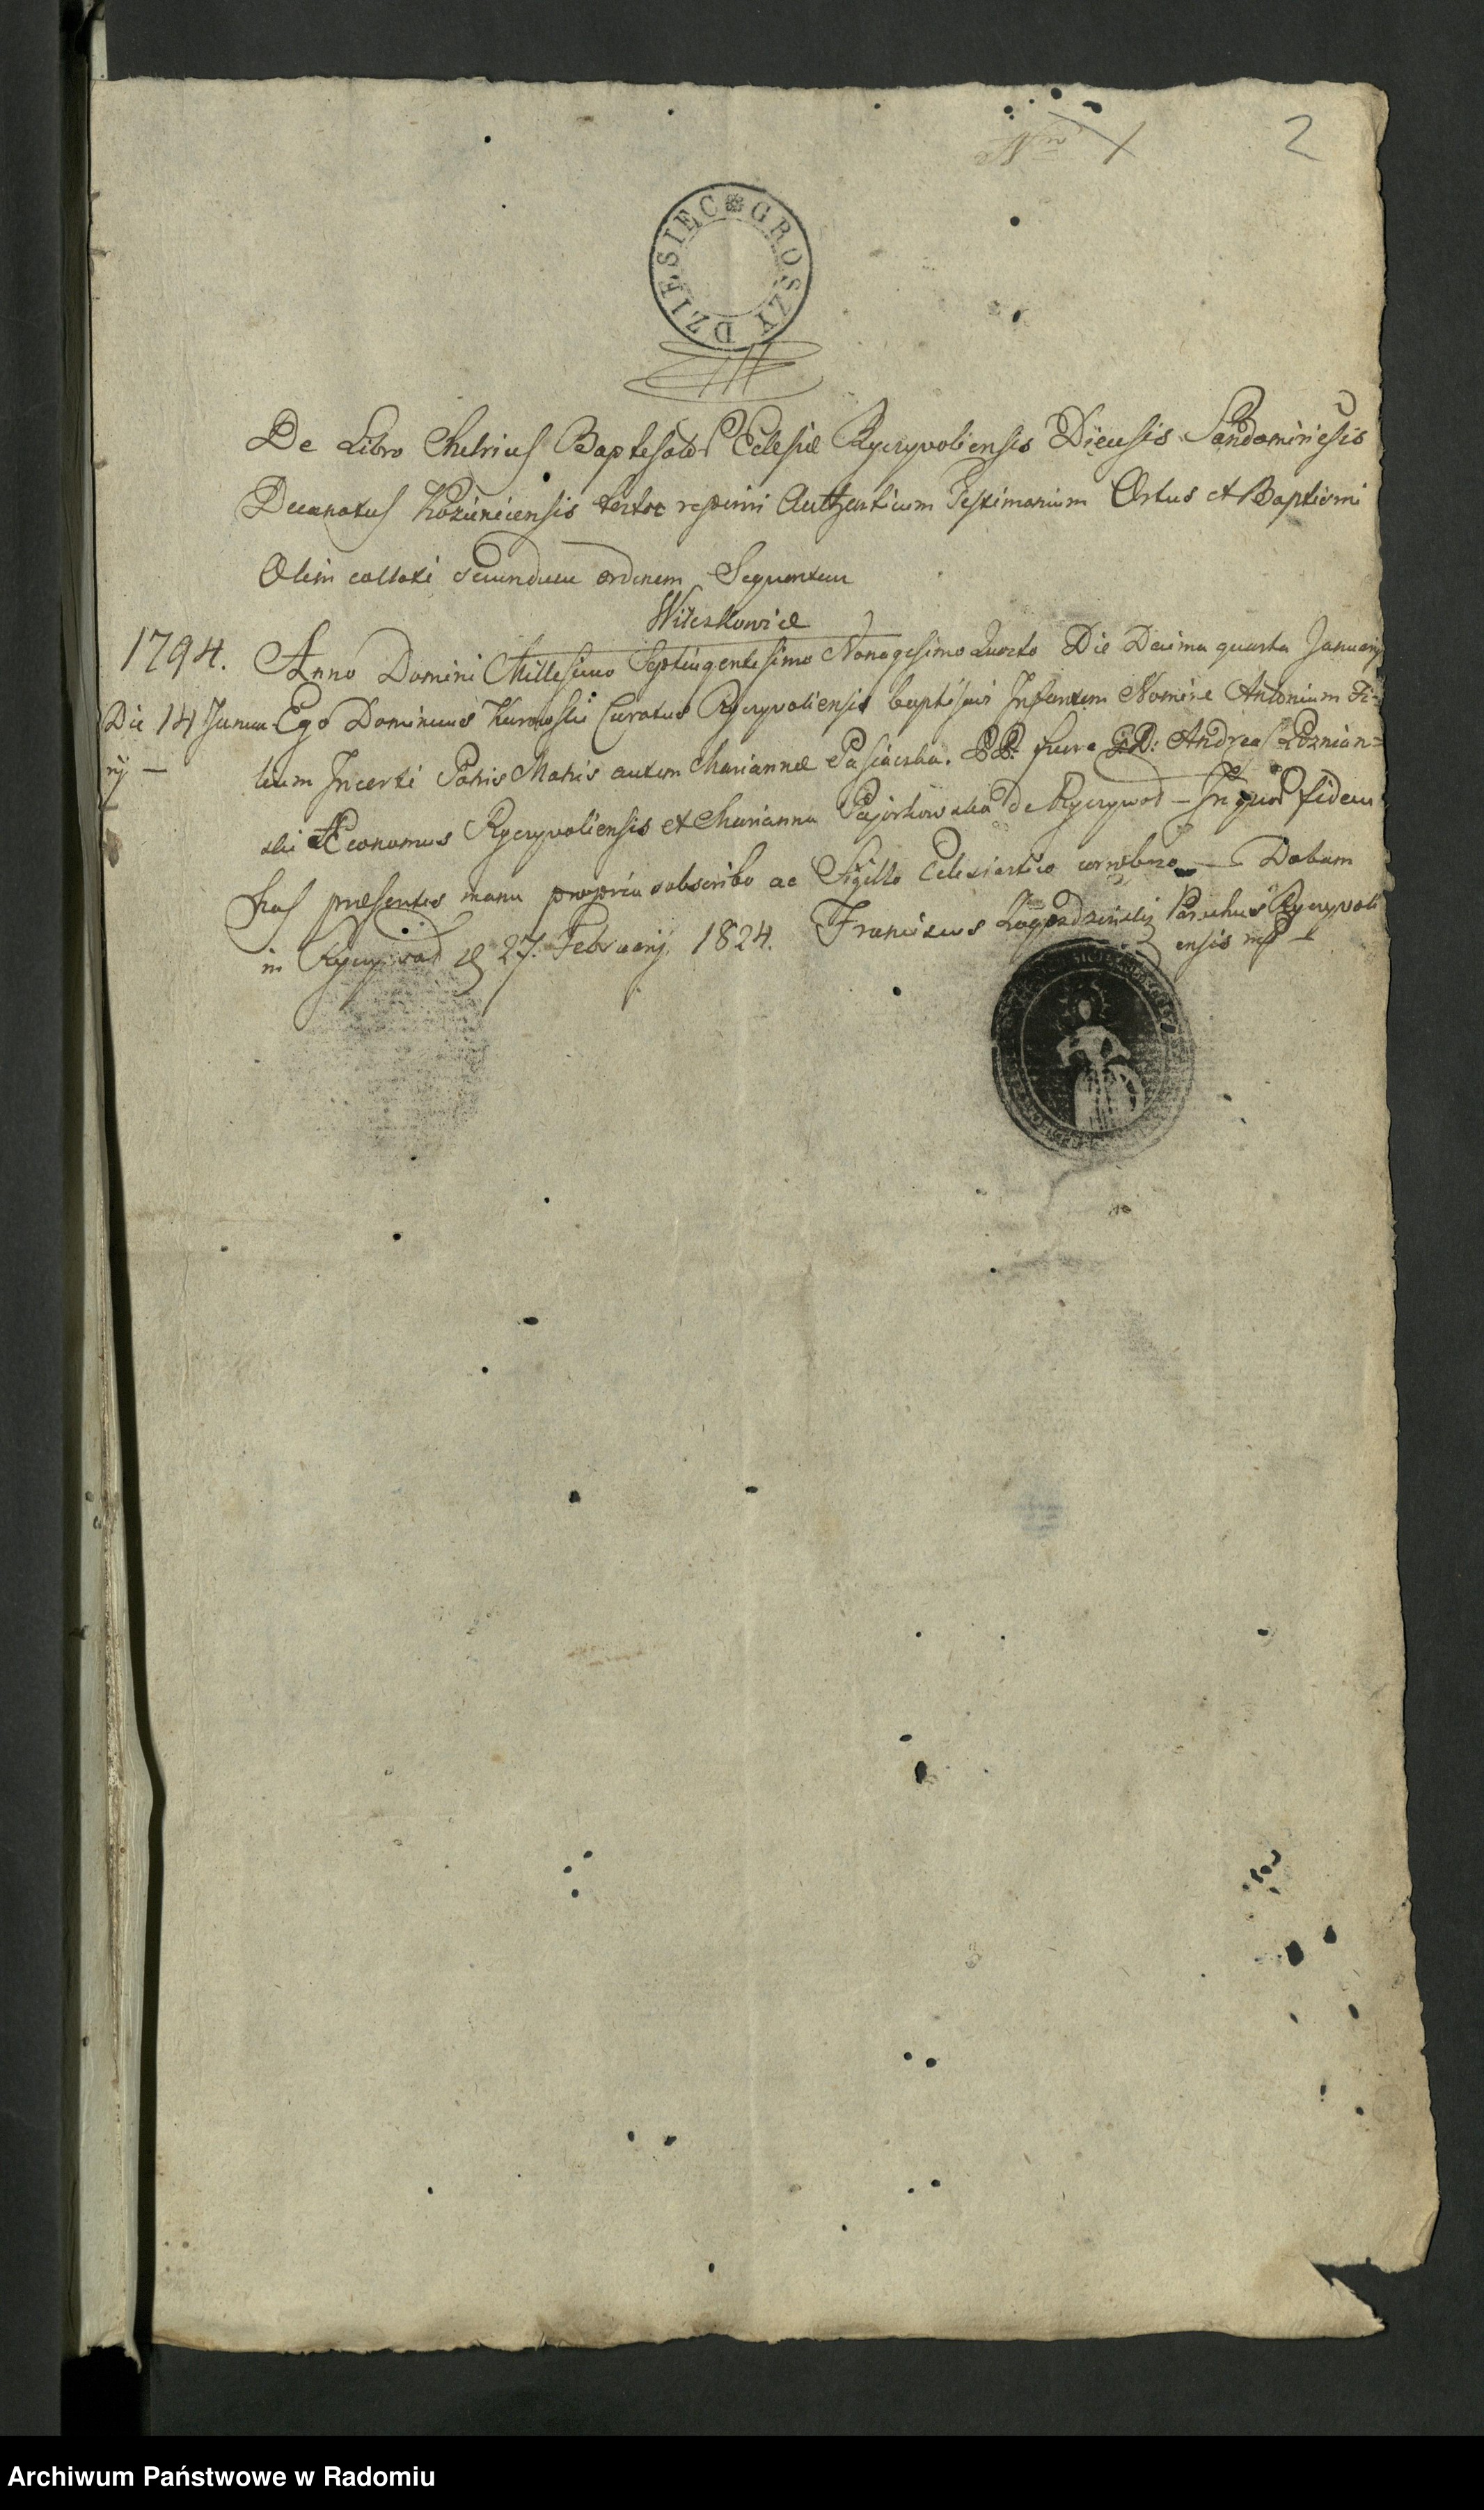 Nro 1
2
DZIESIĘC GROSZY
De Libro Metrices Baptesator Eclesiæ Ryczyvoliensis Dicusis Sandomiriesis
Decanatus Kozieniciensis testor reperiri Authenticum Testimonium Ortus et Baptismi
Olim collati secundum ordinem Sequentem
Wilczkowice
1794. Anno Domini Millesimo Septingentesimo Nonagesimo Quarto Die Decima quarta Januarij
Die 14 Janua Ego Dominicus Kurowski Curatus Ryczyvoliensis baptisavi Infantem Nomine Antonium Fi=
rij — lium Incerti Patris Matris autem Mariannæ Pasiaczka. PP: fuere GD: Andreas Poznian=
ski Æconomus Ryczyvoliensis et Marianna de Ryczywol — In quor fidem
has præsentes manu propria subscribo ac Sigillo Eclesiastico corroboro — Datum
in Ryczywol d 27. Februarij 1824. Franciscus Parochus Ryczyvoli
ensis mp
Archiwum Państwowe w Radomiu